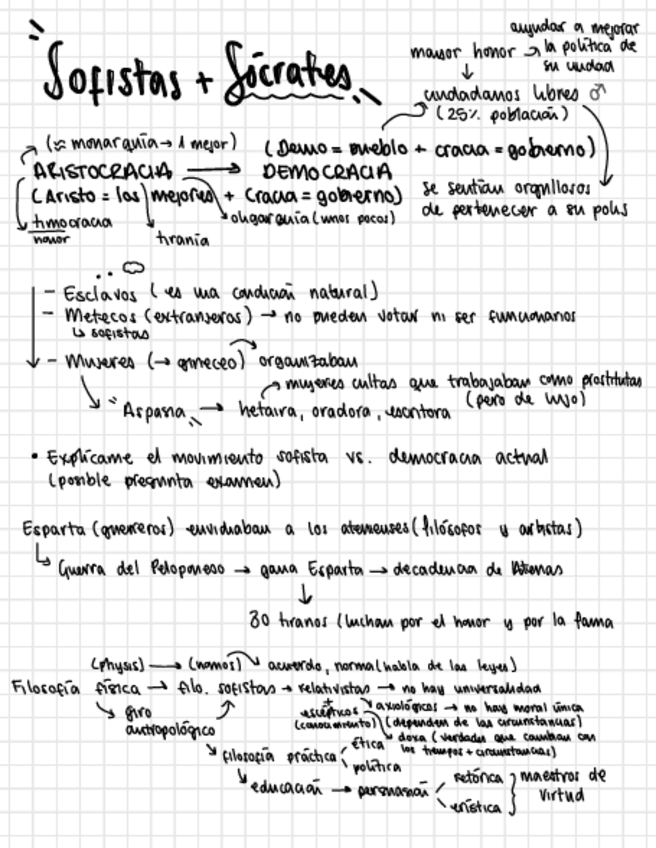 "Sofistas + Sócrates"
ayudar a mejorar
mayor honor → la política de
su ciudad
↓
ciudadanos libres ♂
(25% población)
(≈ monarquía → 1 mejor)
(Demo = pueblo + cracia = gobierno)
ARISTOCRACIA → DEMOCRACIA
(Aristo = los mejores + Cracia = gobierno)
se sentían orgullosos
de pertenecer a su polis
timocracia
honor
oligarquía (unos pocos)
tiranía
- Esclavos (es una condición natural)
- Metecos (extranjeros) → no pueden votar ni ser funcionarios
↳ sofistas
- Mujeres (→ gineceo) organizaban
mujeres cultas que trabajaban como prostitutas
(pero de lujo)
"Aspasia" → hetaira, oradora, escritora
• Explícame el movimiento sofista vs. democracia actual
(posible pregunta examen)
Esparta (guerreros) envidiaban a los atenienses (filósofos y artistas)
↳ Guerra del Peloponeso → gana Esparta → decadencia de Atenas
↓
30 tiranos (luchan por el honor y por la fama
(physis) → (nomos) acuerdo, norma (habla de las leyes)
Filosofía física → filo. sofistas → relativistas → no hay universalidad
giro
antropológico
+
escépticos
(conocimiento)
axiológicos → no hay moral única
(dependen de las circunstancias)
doxa (verdades que cambian con
los tiempos + circunstancias)
filosofía práctica
ética
política
educación → persuasión
retórica
erística
maestros de
virtud